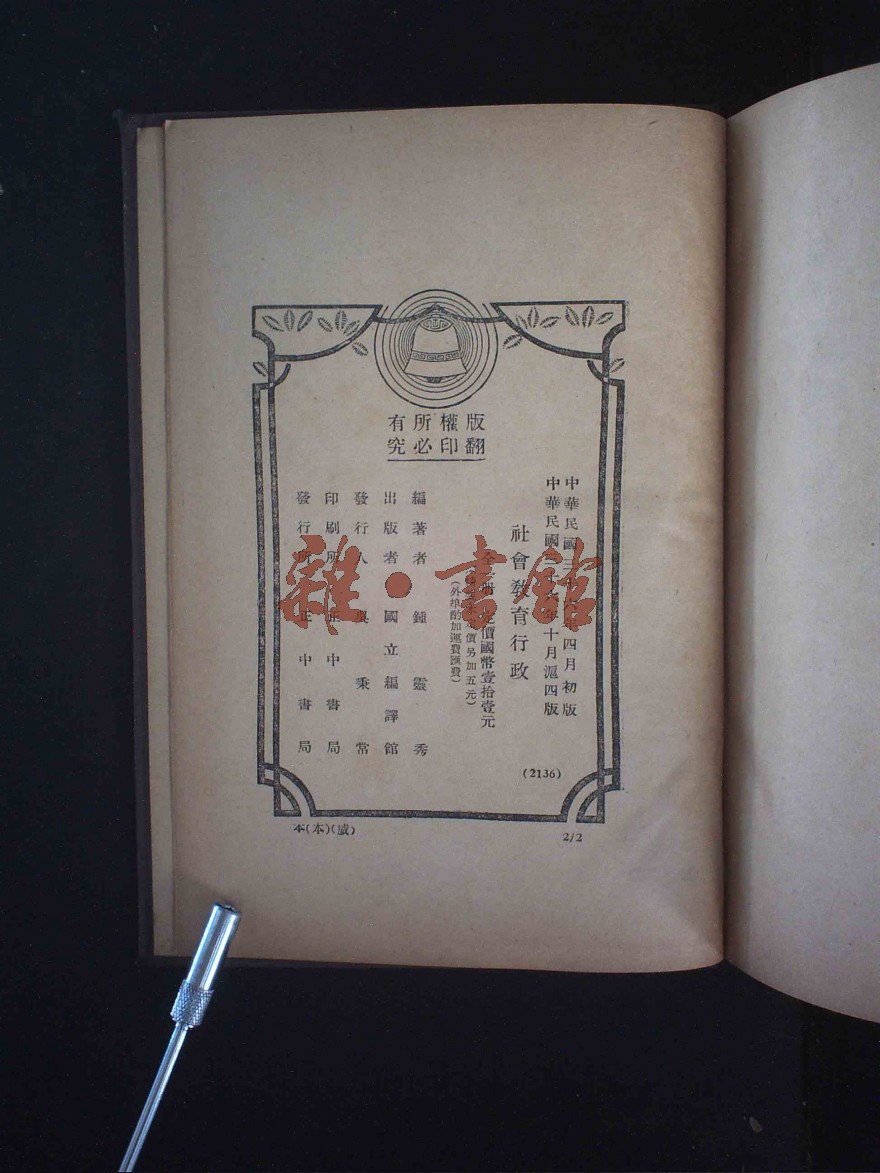 版權所有
翻印必究
中華民國三十六年四月初版
中華民國三十六年十月滬四版
社會教育行政
全一冊 定價國幣壹拾壹元
價另加五元)
(外埠酌加運費匯費)
編著者 鍾靈秀
出版者 國立編譯館
發行人 吳秉常
印刷所 正中書局
發行所 正中書局
(2136)
本(本)(威)
2/2
雜·書館